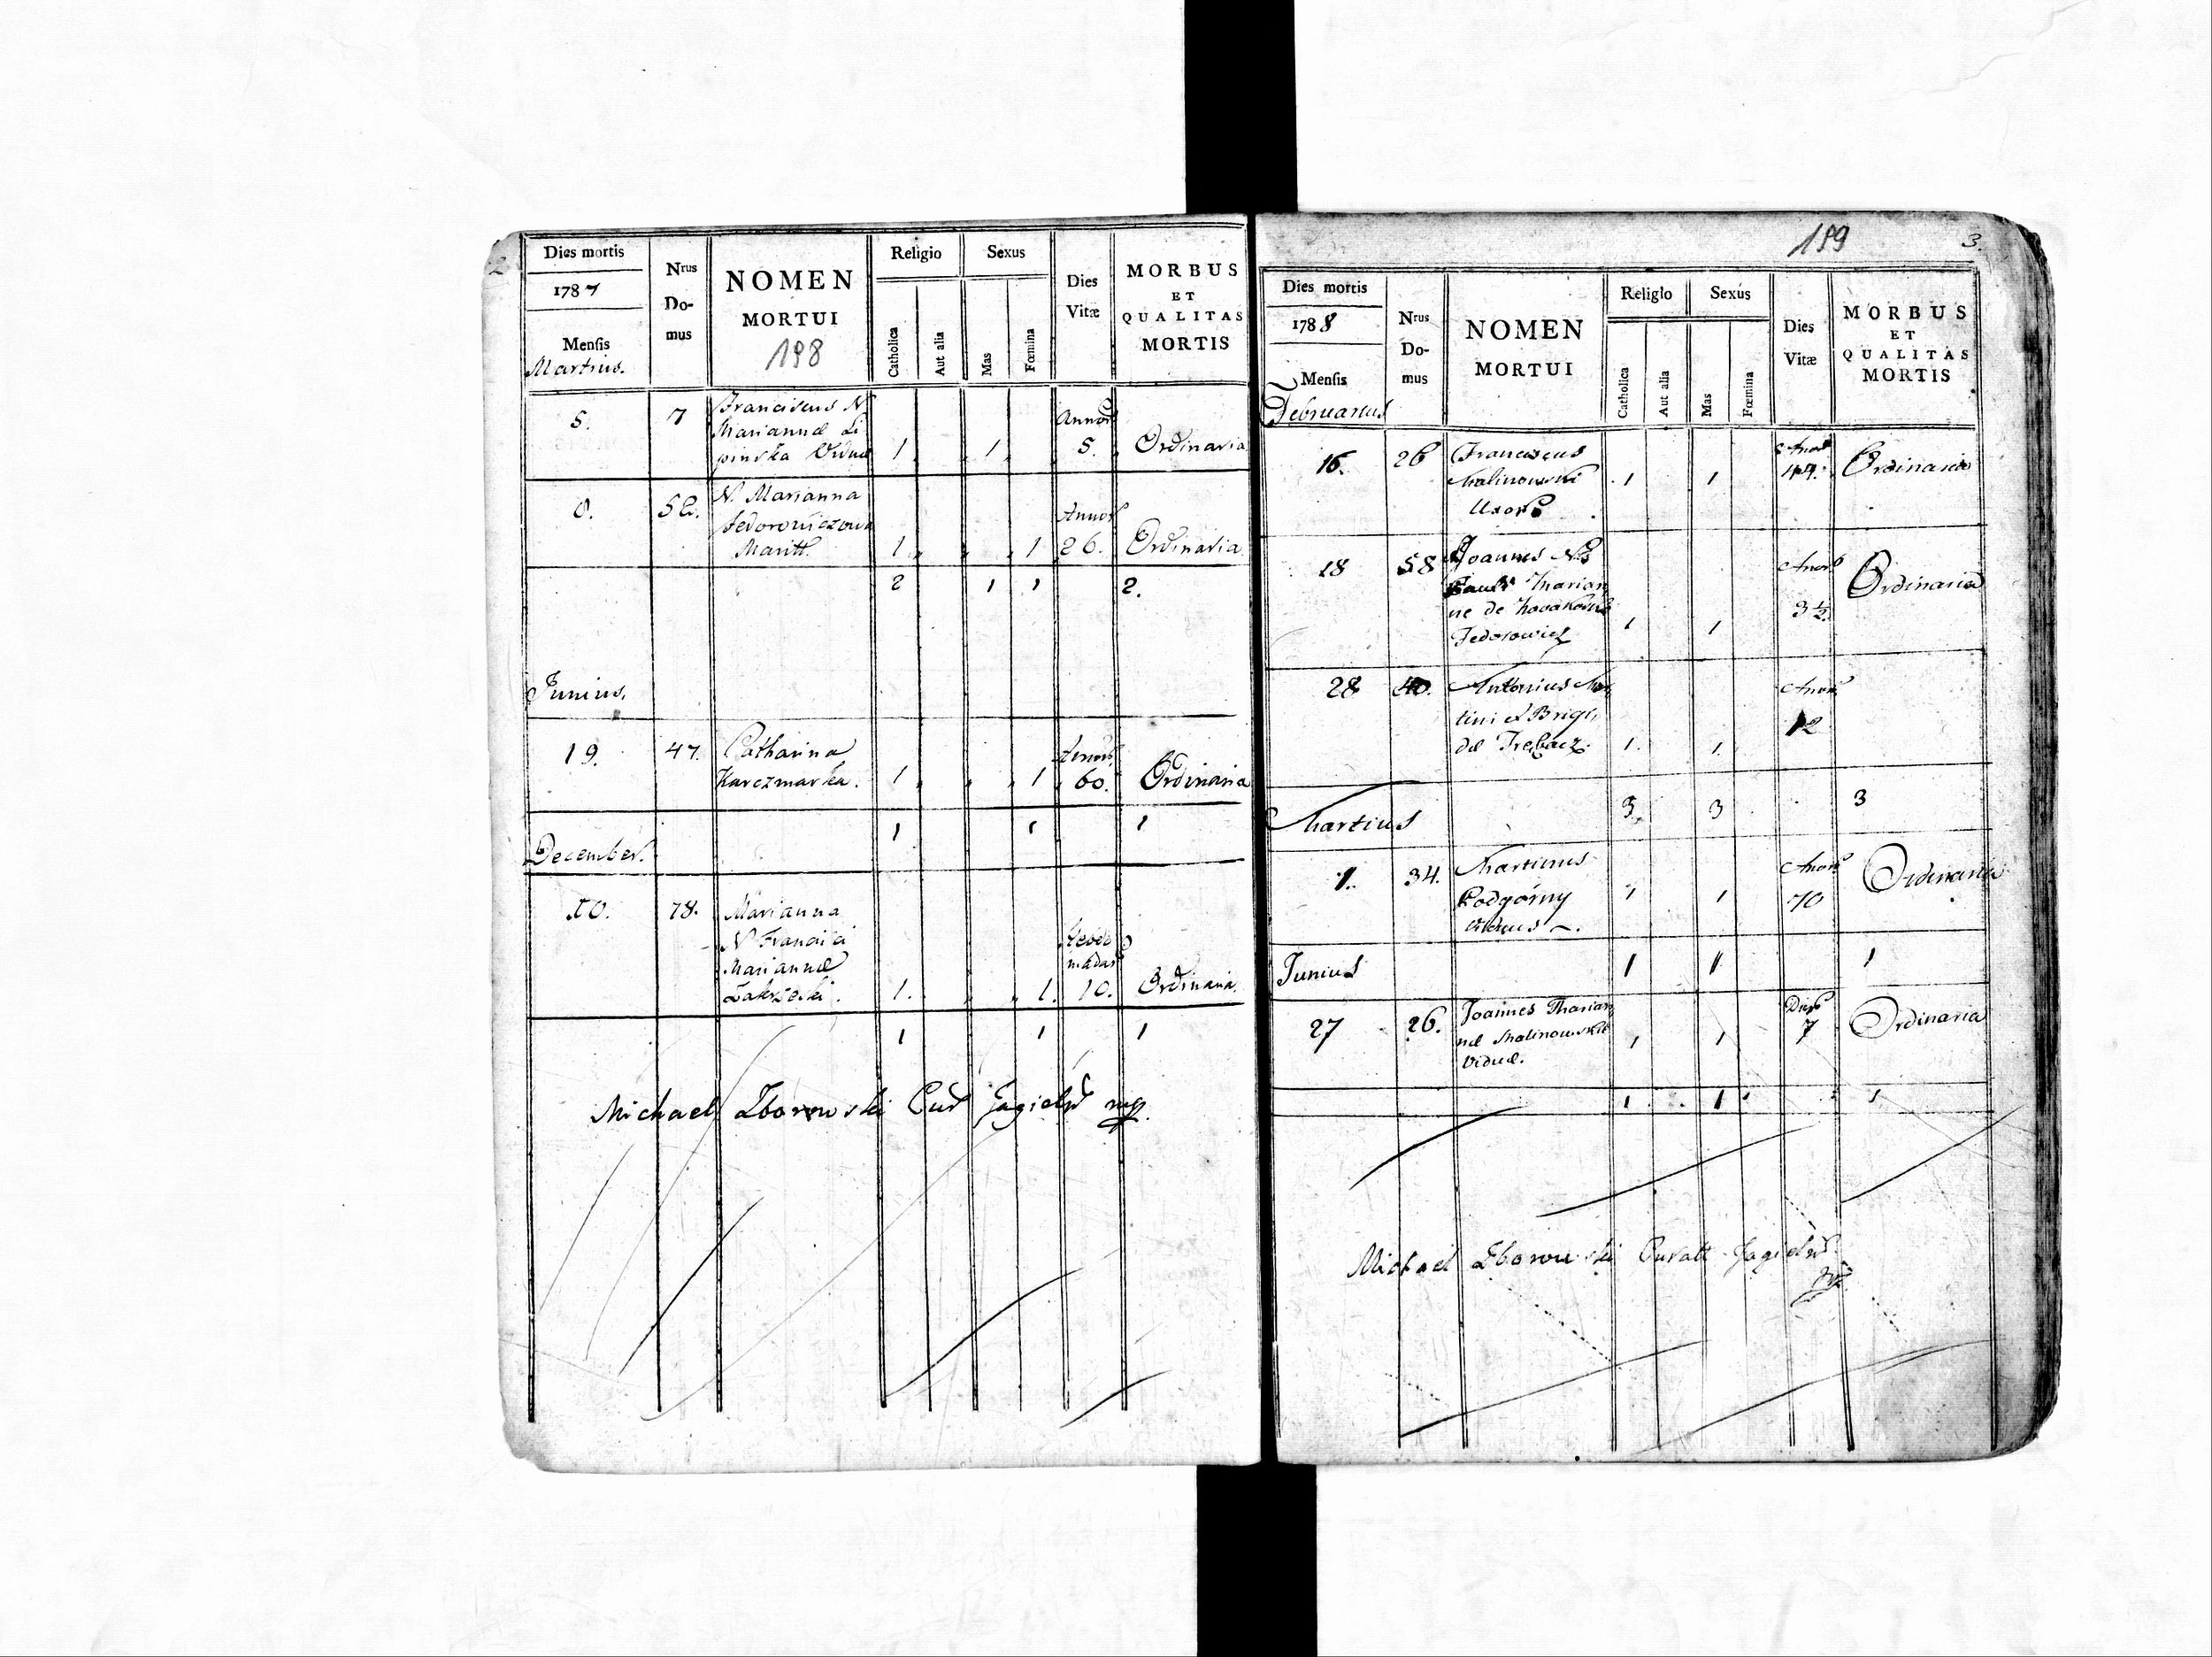 2
Dies mortis
1787
Mensis
Martius.
Nrus
Do-
mus
NOMEN
MORTUI
198
Religio
Catholica
Aut alia
Sexus
Mas
Fœmina
Dies
Vitæ
MORBUS
ET
QUALITAS
MORTIS
5. 7 Franciscus N.
Mariannæ Li
pinska Viduæ 1 1 Annor 5. Ordinaria
8. 52. N. Marianna
Fedorowiczowa
Maritt. 1 1 Annor 26. Ordinaria
2 1 1 2.
Junius.
19. 47. Catharina
Karczmarka. 1 1 Annor 60. Ordinaria
1 1 1
December.
10. 78. Marianna
N Francisci
Mariannæ
Zakrzeski. 1. 1. Hebdo
madar
10. Ordinaria.
1 1 1
Michael Zborowski Cur Jagiels mp.
199
3.
Dies mortis
1788
Mensis
Februarius
Nrus
Do-
mus
NOMEN
MORTUI
Religio
Catholica
Aut alia
Sexus
Mas
Fœmina
Dies
Vitæ
MORBUS
ET
QUALITAS
MORTIS
16. 26 Franciscus
Malinowski
1 1 44. Ordinaria
18 58 Joannes
Marian
ne de
Fedorowicz 1 1 Anor 3½. Ordinaria
28 40. Antonius Mar
tini et Brigi
dæ Trębacz. 1. 1. Anor 12
3 3 3
Martius
1. 34. Martinus
Podgórny
Viduus 1 1 Anor 70 Ordinaria
1 1 1
Junius
27 26. Joannes Marian
næ Malinowskie
Viduæ. 1 1 Dier 7 Ordinaria
1 1 1
Michael Zborowski Curatt Jagiels
mp